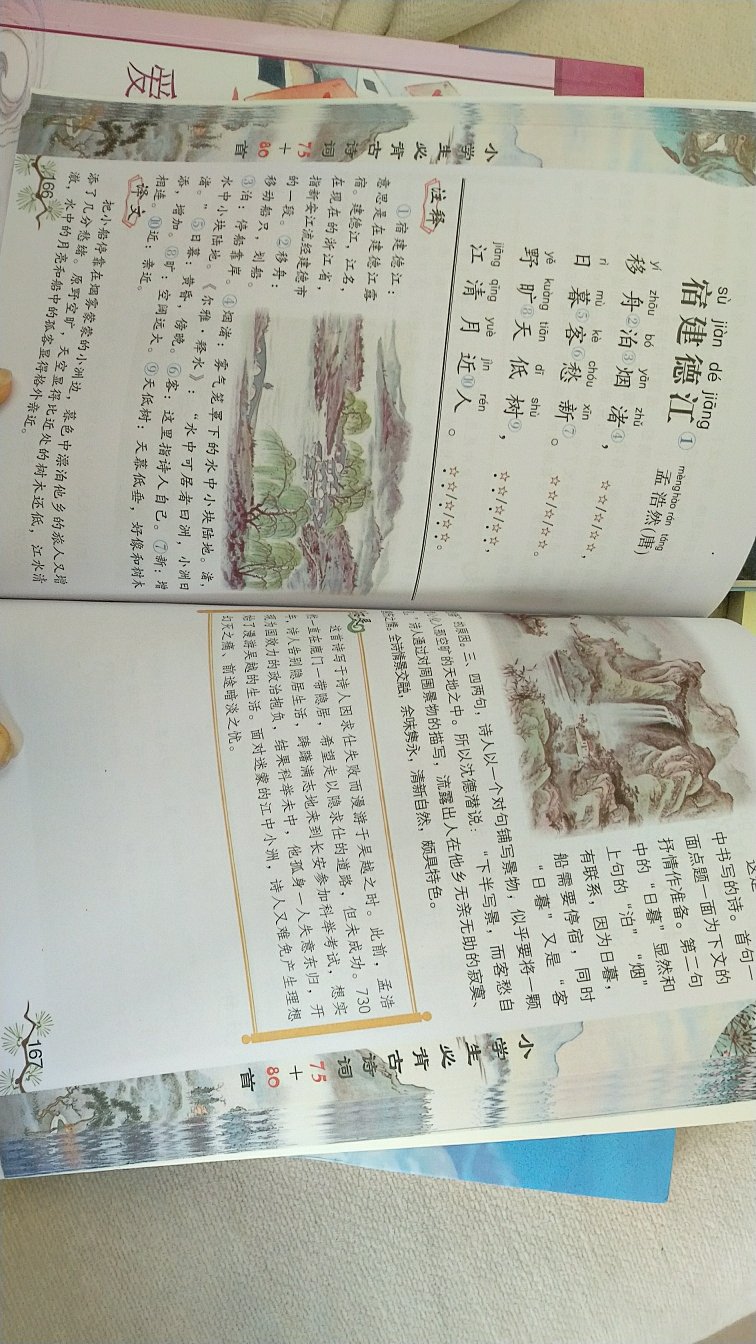 爱
小学生必背古诗词75+80首
sù jiàn dé jiāng
宿建德江①
mèng hào rán táng
孟浩然(唐)
yí zhōu bó yān zhǔ
移舟②泊③烟渚④，☆☆/☆/☆☆，
rì mù kè chóu xīn
日暮⑤客⑥愁新⑦。☆☆/☆/☆☆。
yě kuàng tiān dī shù
野旷⑧天低树⑨，☆☆/☆/☆☆，
jiāng qīng yuè jìn rén
江清月近⑩人。☆☆/☆/☆☆。
注释
①宿建德江：
意思是在建德江露
宿。建德江，江名，
在现在的浙江省，
指新安江流经建德市
的一段。②移舟：
移动船只，划船。
③泊：停船靠岸。④烟渚：雾气笼罩下的水中小块陆地。渚，
水中小块陆地。《尔雅·释水》：“水中可居者曰洲，小洲曰
渚。”⑤日暮：黄昏，傍晚。⑥客：这里指诗人自己。⑦新：增
添，增加。⑧旷：空阔远大。⑨天低树：天幕低垂，好像和树木
相连。⑩近：亲近。
译文
把小船停靠在烟雾蒙蒙的小洲边，暮色中漂泊他乡的旅人又增
添了几分愁绪。原野空旷，天空显得比近处的树木还低，江水清
澈，水中的月亮和船中的孤客显得格外亲近。
166
中书写的诗。首句一
面点题一面为下文的
抒情作准备。第二句
中的“日暮”显然和
上句的“泊”“烟”
有联系，因为日暮，
船需要停宿，同时
“日暮”又是“客
的原因。三、四两句，诗人以一个对句铺写景物，似乎要将一颗
入那空旷的天地之中。所以沈德潜说：“下半写景，而客愁自
诗人通过对周围景物的描写，流露出人在他乡无亲无助的寂寞、
之感，全诗情景交融，余味隽永，清新自然，颇具特色。
这首诗写于诗人因求仕失败而漫游于吴越之时。此前，孟浩
然一直在鹿门一带隐居，希望走以隐求仕的道路，但未成功。730
年，诗人告别隐居生活，踌躇满志地来到长安参加科举考试，想实
现为国效力的政治抱负，结果科举未中，他孤身一人失意东归，开
始了漫游吴越的生活。面对迷蒙的江中小洲，诗人又难免产生理想
幻灭之痛、前途暗淡之忧。
小学生必背古诗词75+80首
167